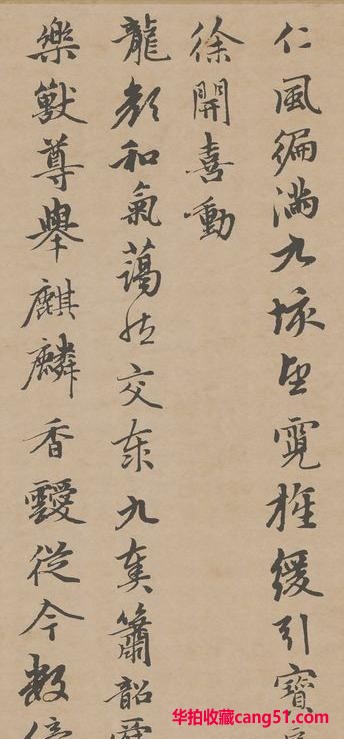 仁風徧滿九垓望霓旌緩引寶
徐開喜動
龍顏和氣藹然交泰九奏簫韶舜
樂獸尊舉麒麟香靉從今數億
华拍收藏cang51.com